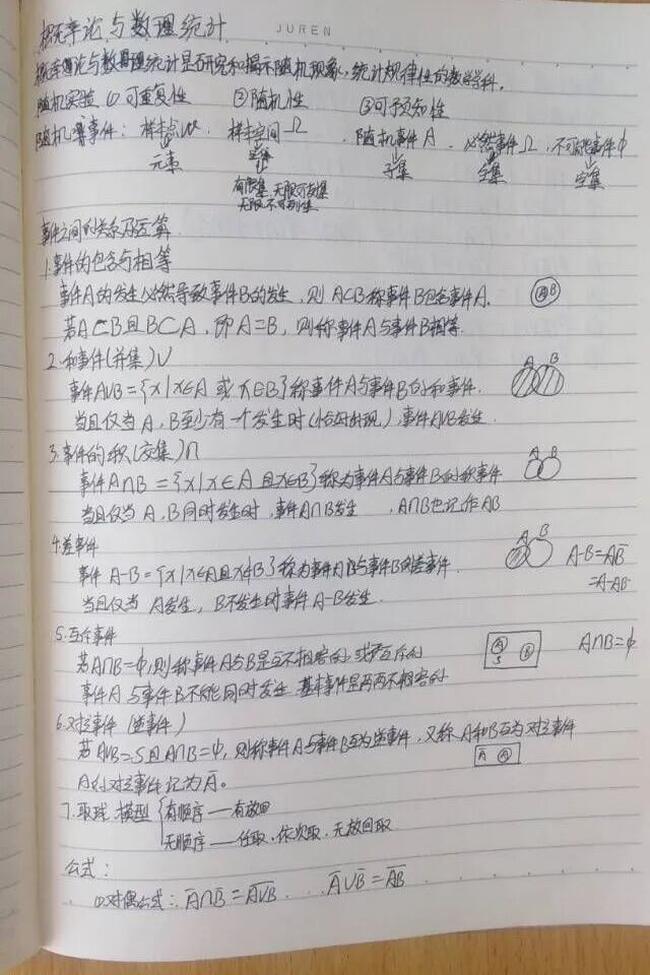 JUREN
概率论与数理统计
概率论与数理统计是研究和揭示随机现象,统计规律性的数学学科。
随机实验 ①可重复性 ②随机性 ③可预知性
随机事件: 样本点w 样本空间Ω 、随机事件A 、必然事件Ω 、不可能事件Φ
元素 全集 子集 全集 空集
有限集、无限可列集
无限不可列集
事件之间的关系及运算
1.事件的包含与相等
事件A的发生必然导致事件B的发生,则A⊂B称事件B包含事件A. A B
若A⊂B且B⊂A,即A=B,则称事件A与事件B相等.
2.和事件(并集)∪
A B
事件A∪B={x|x∈A 或 x∈B}称事件A与事件B的和事件.
当且仅当A、B至少有一个发生时(),事件A∪B发生.
3.事件的积(交集)∩
A B
事件A∩B={x|x∈A且x∈B}称为事件A与事件B的积事件
当且仅当A、B同时发生时,事件A∩B发生 ,A∩B也记作AB
4.差事件
A B
事件A-B={x|x∈A且x∉B}称为事件A与事件B的差事件. A-B=AB̅
=A-AB
当且仅当A发生,B不发生时事件A-B发生.
5.互斥事件
若A∩B=Φ,则称事件A与B是互不相容的或互斥的 A B S A∩B=Φ
事件A与事件B不能同时发生.基本事件是两两不相容的
6.对立事件(逆事件)
若A∪B=S且A∩B=Φ,则称事件A与事件B互为逆事件,又称A和B互为对立事件
A的对立事件记为A̅。 A̅ A
7.取球模型 有顺序——有放回
无顺序——任取、依次取、无放回取
公式:
①对偶公式: A̅∩B̅=A̅∪̅B̅ A̅∪B̅=A̅B̅